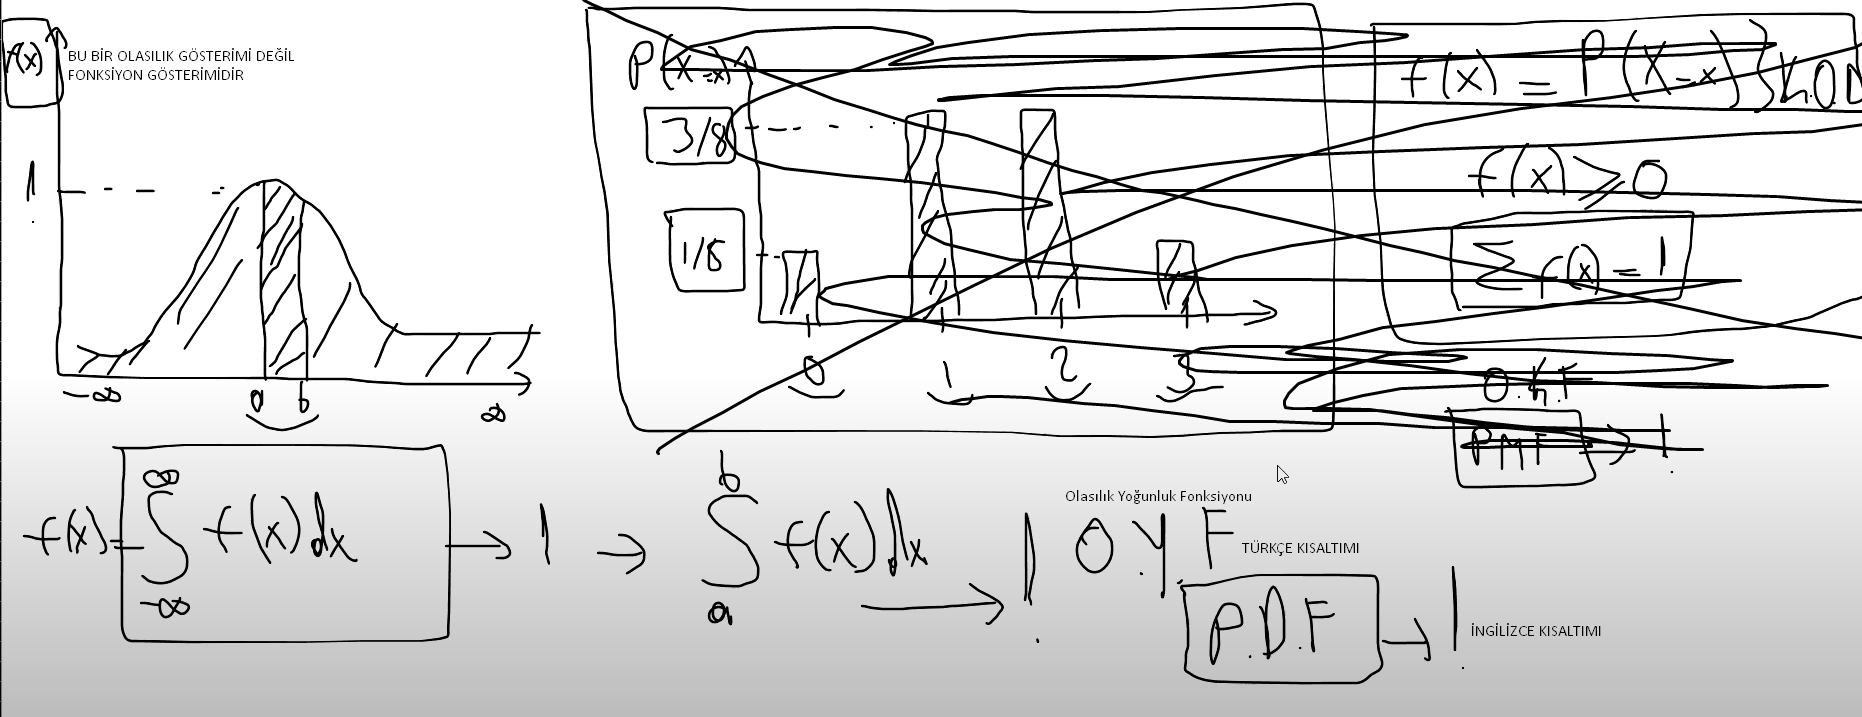 f(x)
BU BİR OLASILIK GÖSTERİMİ DEĞİL
FONKSİYON GÖSTERİMİDİR
1
-∞ a b ∞
P(X=x)
3/8
1/8
0 1 2 3
f(x) = P(X=x) } K.O.D
f(x) ≥ 0
∑ f(x) = 1
O.K.F
PMF → 1
f(x) = ∫_{-∞}^{∞} f(x) dx → 1 → ∫_{a}^{b} f(x) dx → 1
Olasılık Yoğunluk Fonksiyonu
O.Y.F TÜRKÇE KISALTIMI
P.D.F → 1 İNGİLİZCE KISALTIMI